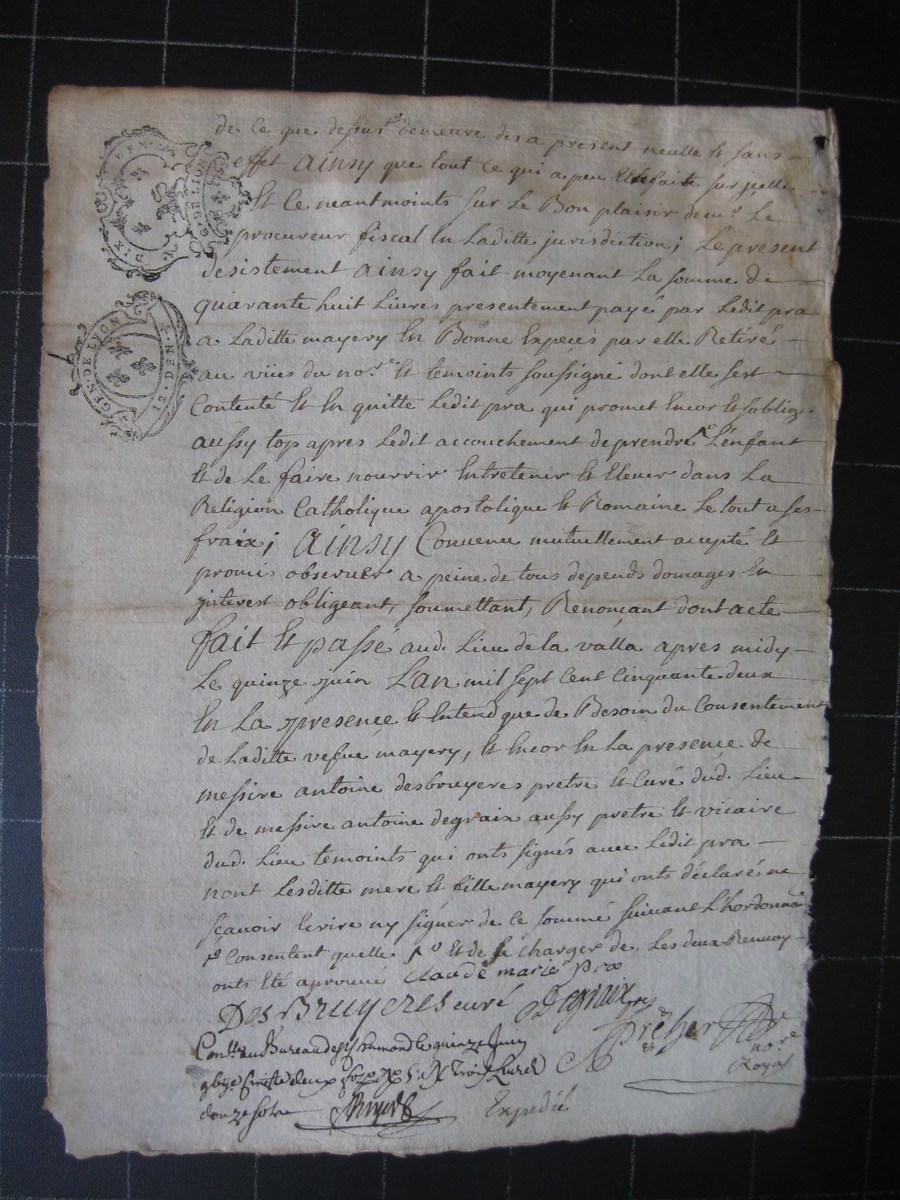 GEN. DE LION
GEN. DE LYON
12. DEN. 4.
de Ce que dessus ꝑ demeure des a present neulle Et sans
effet AINSY que tout ce qui a peu Etre faite sur jcelle
Et Ce neantmoints sur Le Bon plaisir de mr. Le
procureur fiscal En Laditte jurisdiction; Le present
desistement AINSY fait moyenant La somme de
quarante huit Livres presentement payé par Ledit pra
a Laditte mayery En Bonne Espeçes par elle Retiré
au vûes du nore. Et temoints soussigné dont elle sest
Contenté Et En quitte Ledit pra qui promet Encor Et soblige
aussy top apres Ledit accouchement de prendre L'Enfant
Et de Le faire nourrir Entretener Et Elever dans La
Religion Catholique apostolique Et Romaine Le tout a ses
fraix; AINSY Convenu mutuellement accepté Et
promi observer a peine de tous depends domages En
jnterest obligeant, soumettant, Renonçant dont acte
fait Et passé aud. Lieu de la valla apres midy
Le quinze juin L'AN mil sept Cent Cinquante deux
En La presençe Et Entend que de Besoin du Consentement
de Laditte vefue mayery, Et Encor En La presence de
messire antoine desbruyeres pretre Et Curé dud. Lieu
Et de messire antoine degraix aussy pretre Et vicaire
dud. Lieu temoints qui onts signés avec Ledit pra
nont Lesditte mere Et fille mayery qui onts déclaré ne
sçavoir Ecrire ny signer de Ce sommé suivant L'hordonnance
ꝑ Consentent quelle ꝑ Et de se Charger de Les deux Renvoy
onts Eté aprouvé Claude marie pra
DesBruyeres curé Degraix
nore
Royal
Conllé au Bureau de St chamond le quinze Juin
trois Livres
douze sols
Expedié